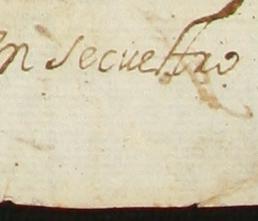 in secuestro